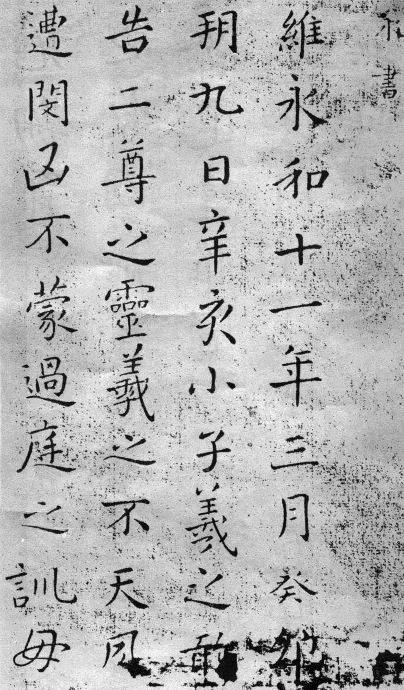 書
維永和十一年三月癸卯
朔九日辛亥小子羲之敢
告二尊之靈羲之不天夙
遭閔凶不蒙過庭之訓毋